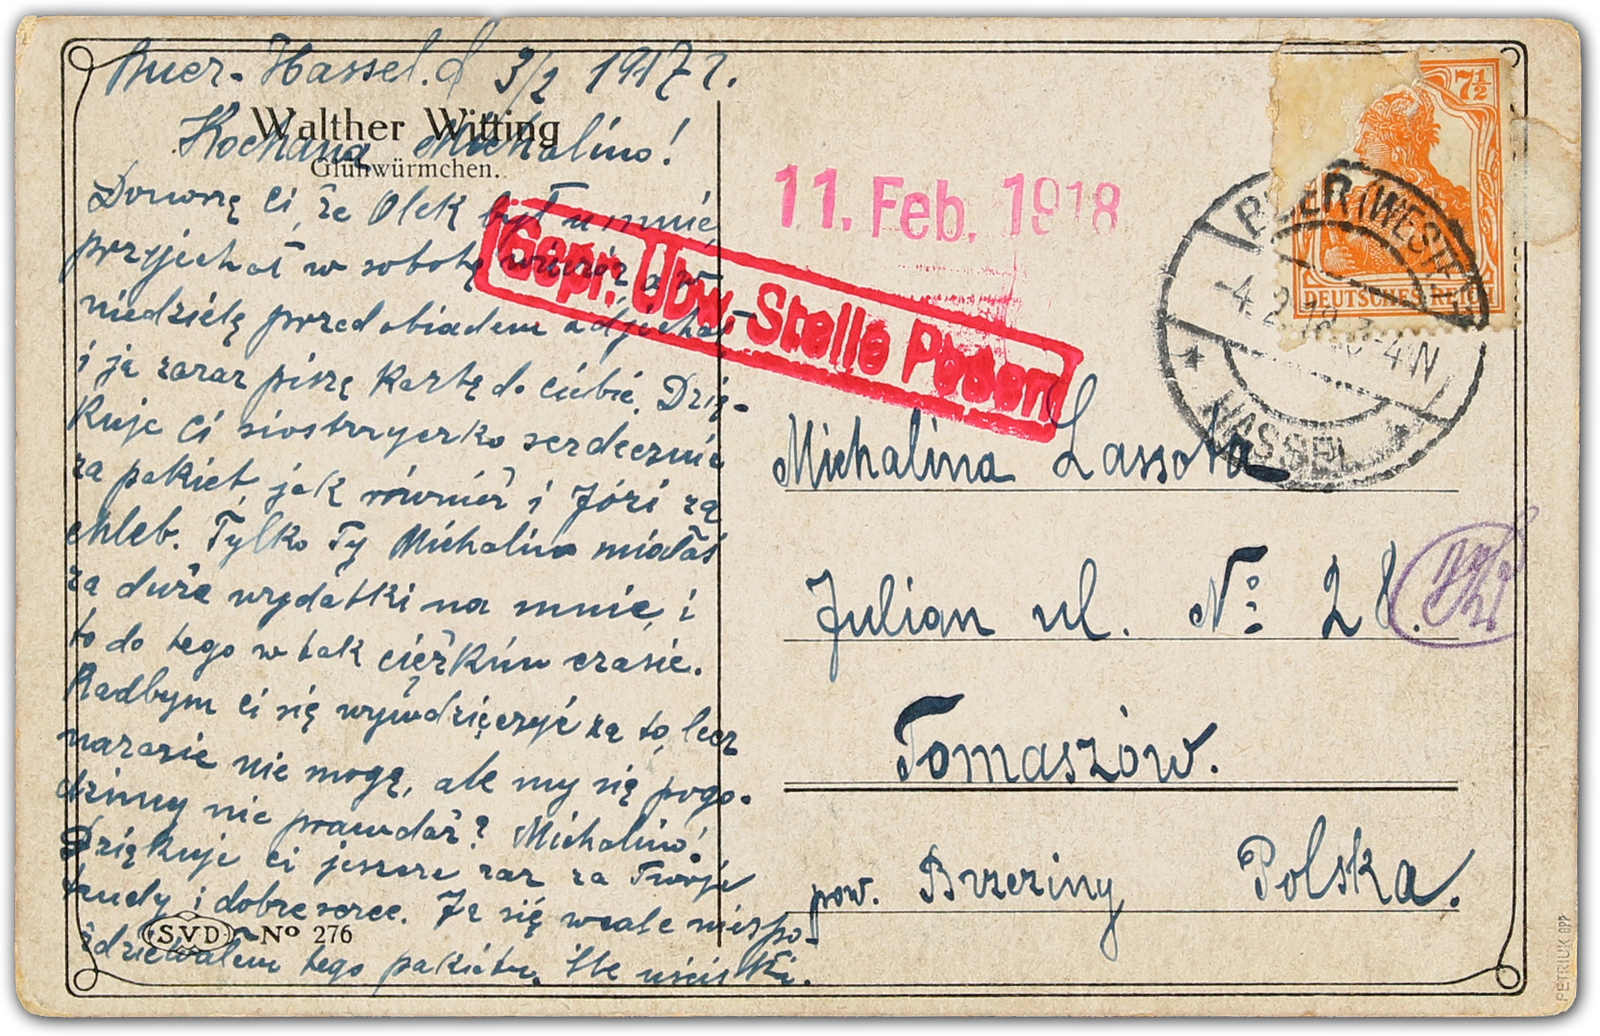 Buer-Hassel. d 3/2 1917 r.
Walther Witting
Glühwürmchen.
Kochana Michalino!
Donoszę Ci, że Olek był u mnie,
przyjechał w sobotę wieczór a w
niedzielę przed obiadem odjechał
i ja zaraz piszę kartkę do Ciebie. Dzię-
kuje Ci siostrzyczko serdecznie
za pakiet, jak również i Józi za
chleb. Tylko Ty Michalino miałaś
za duże wydatki na mnie, i
to do tego w tak ciężkim czasie.
Radbym ci się wywdzięczyć za to, lecz
narazie nie mogę, ale my się pogo-
dzimy nie prawdaż? Michalino!
Dziękuje ci jeszcze raz za Twoje
trudy i dobre serce. Ja się wcale niespo-
dziewałem tego pakietu. Ślę uściski.
SVD No 276
11. Feb. 1918
Gepr. Übw. Stelle Posen
7½
DEUTSCHES REICH
BUER (WESTF)
-4.2.18.3-4N
* HASSEL *
Michalina Lassota
Julian ul. No: 28.
Tomaszów.
pow. Brzeziny Polska.
PETRIUK app